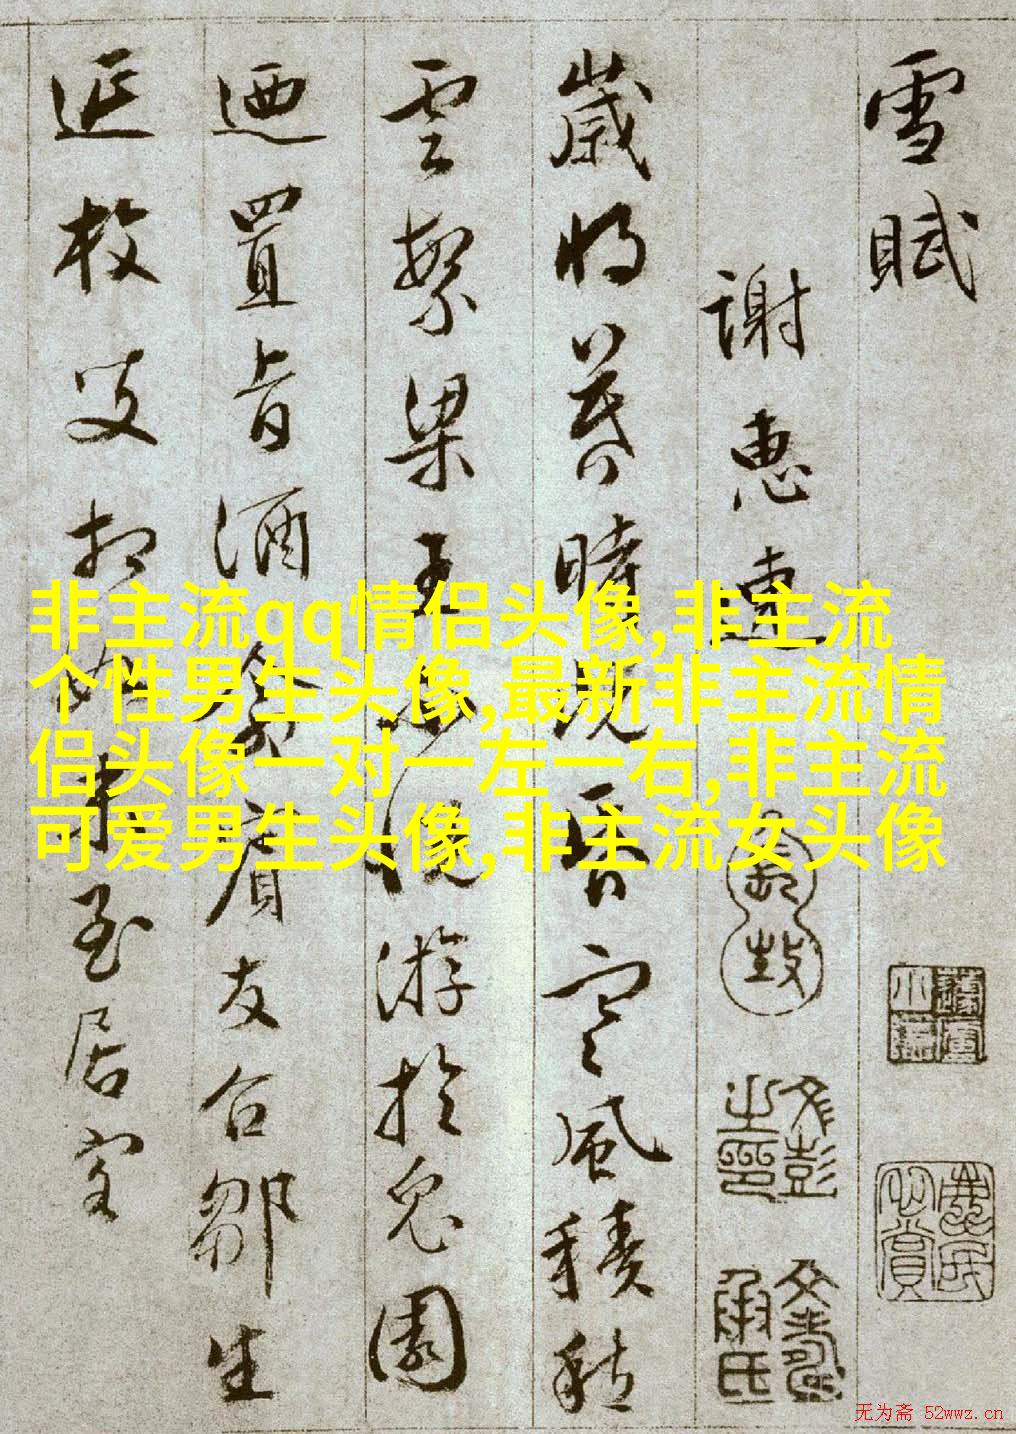 雪賦
謝惠連
歲將暮時既昏寒風積愁
雲繁梁王不悅游於兔園
迺置旨酒命賓友召鄒生
延枚叟相如末至居客
文彭之印
文壽承氏
非主流qq情侣头像,非主流
个性男生头像,最新非主流情
侣头像一对一左一右,非主流
可爱男生头像,非主流女头像
无为斋 52wwz.cn